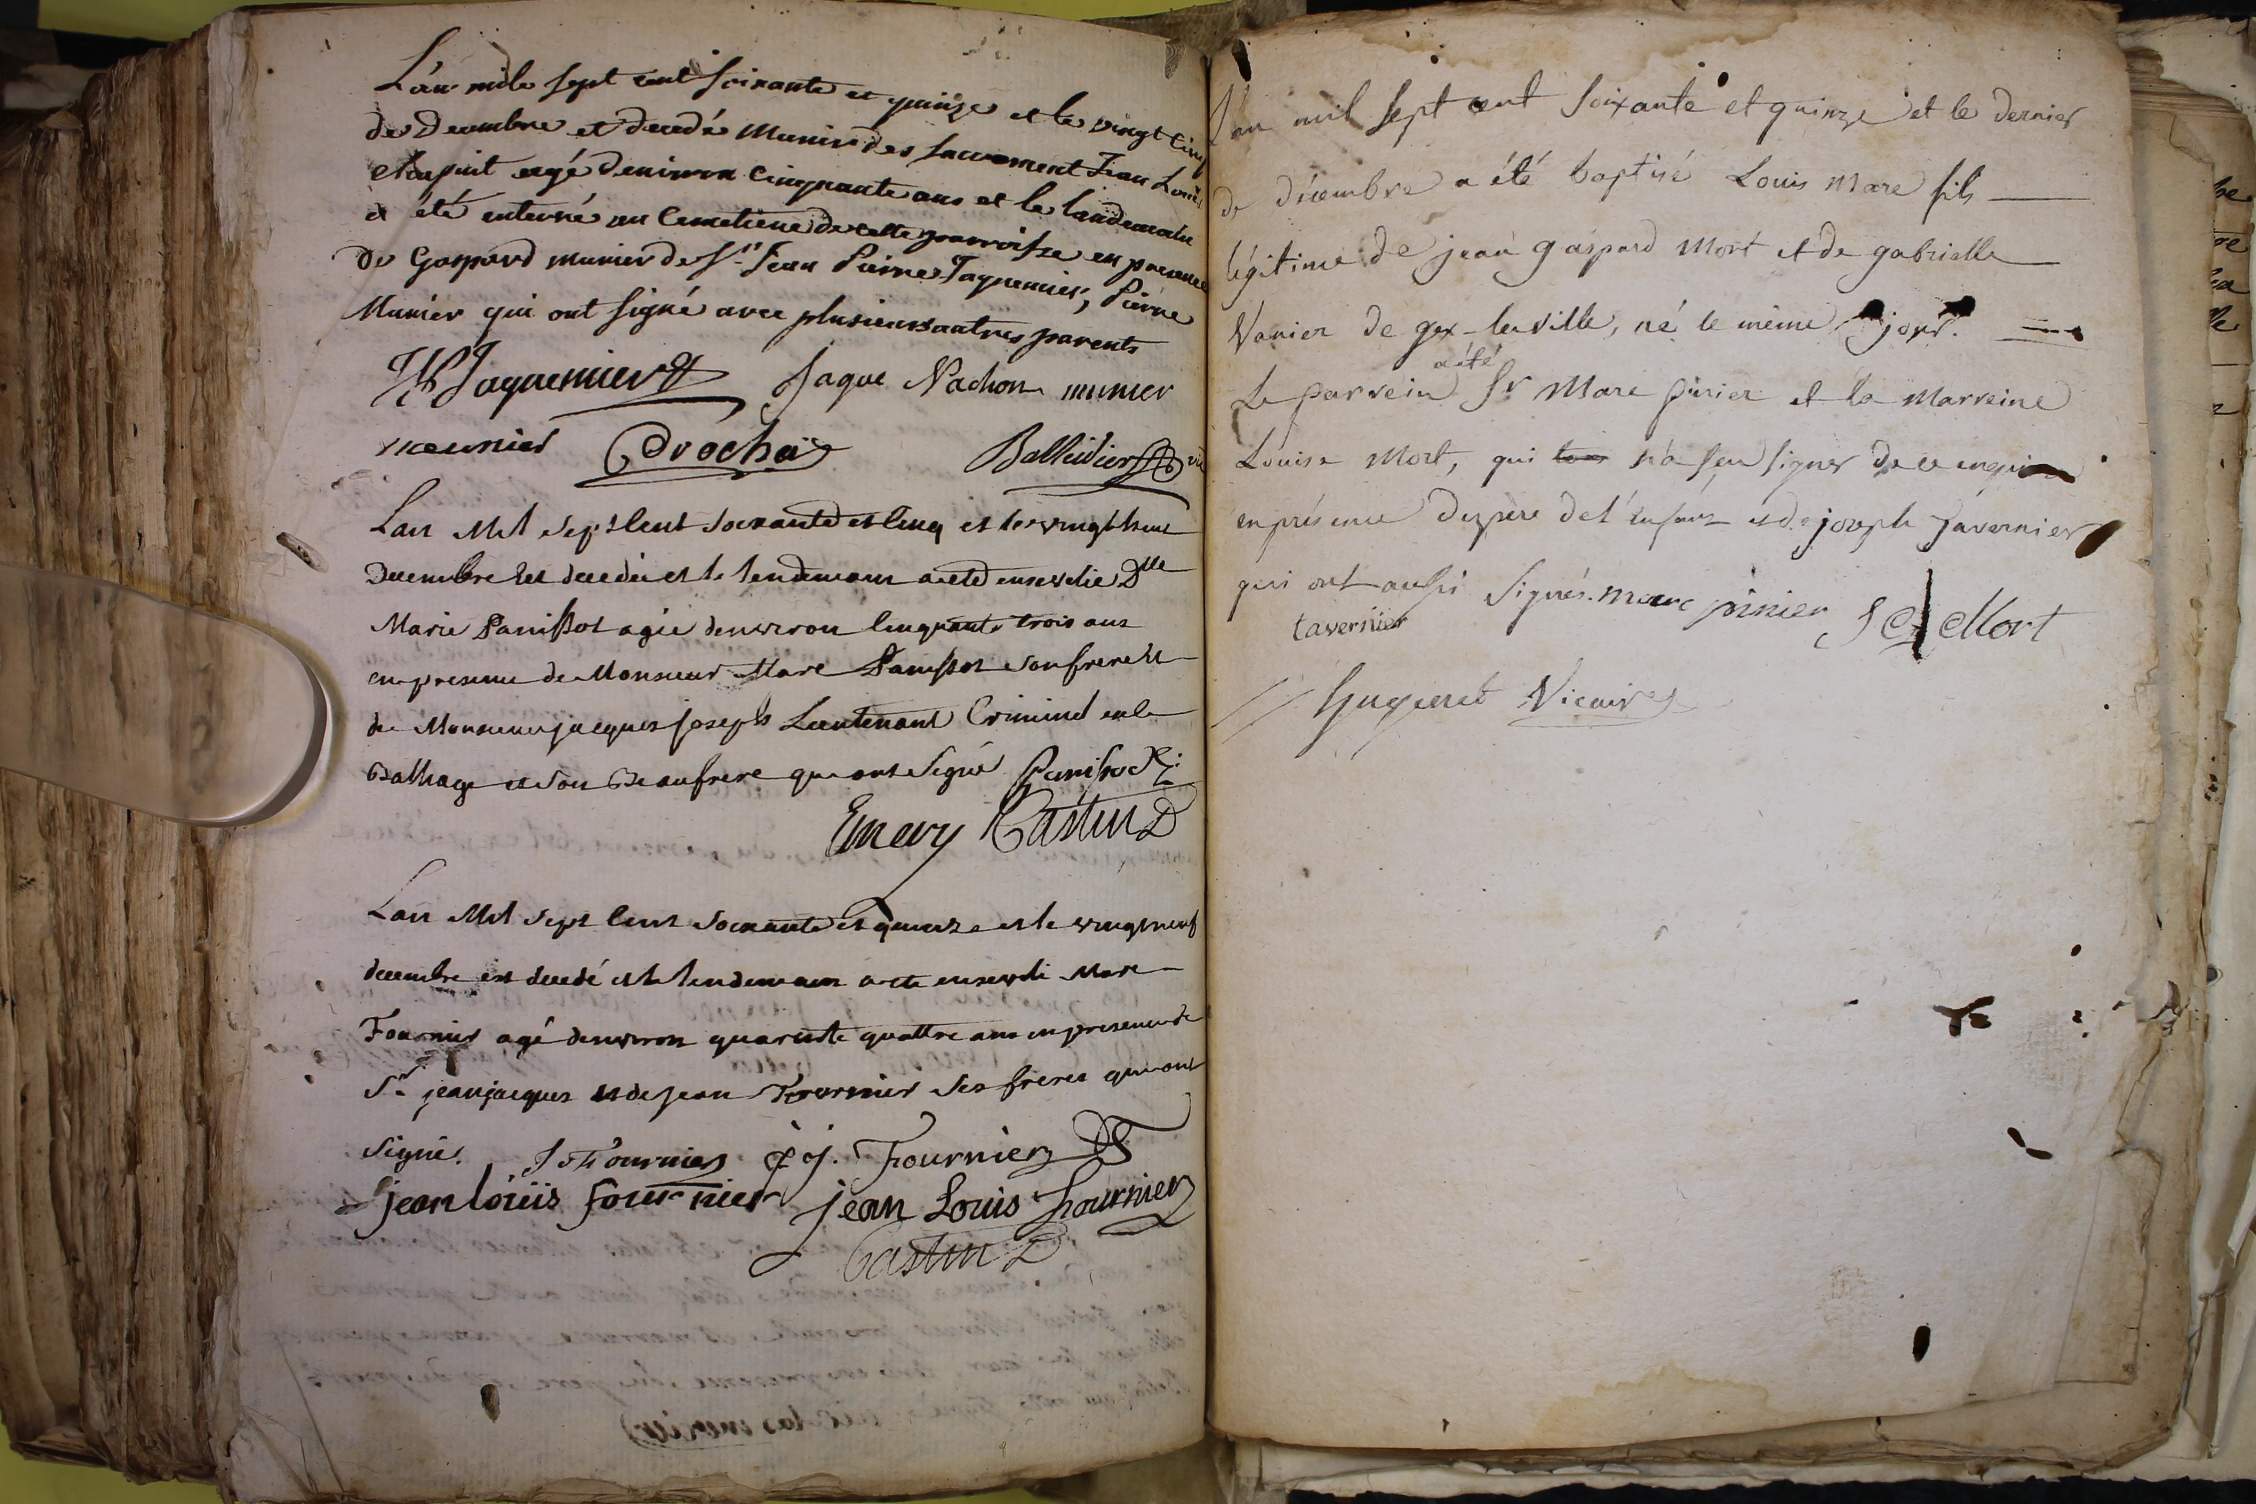 L'an mile sept cent soixante et quinze et le vingt cinq
de Decembre et decedé Munis des sacrement Jean Louis
agé denviron Cinquante ans et le landemain
a été enterré au Cemetiere de cette parroisse en presence
De Gaspard munier de Sr Jean Pierre Jaquemier, Pierre
Munier qui ont signé avec plusieurs autres parents
Jaquemier Jaque Vachon munier
meunier Crochat Balleidier
Lan Mil sept Cent soixante et Cinq et le vingt huit
Decembre est decedée et le lendemain a eté ensevelie Dlle
Marie Panissot agée denviron Cinquante trois ans
en presence de Monsieur Marc Panissot son frere et
de Monsieur jacques joseph Lieutenant Criminel en le
Balliage et son Beaufrere qui ont Signé Panissod
Emery Castin
Lan Mil sept Cent soixante et quinze et le vingt neuf
decembre est decedé et le lendemain a ete enseveli Marc
Fournier agé denviron quarente quattre ans en presence de
Sr jean jacques et de jean Fournier ses freres qui ont
signé. J Fournier J j. Fournier
jean loúis fournier jean Louis Fournier
Castin
L'an mil sept cent soixante et quinze et le dernier
de décembre a été baptisé Louis Marc fils
légitime de jean gaspard Mort et de gabrielle
Vanier de gex-la ville, né le même jour.
a été
Le parrein Sr Marc pinier et la Marreine
Louise Mort, qui n'a sçu signer de ce enquise
en présence du père de l'enfant et de joseph Tavernier
qui ont aussi signés. marc pinier J G Mort
tavernier
Huguenet Vicaire